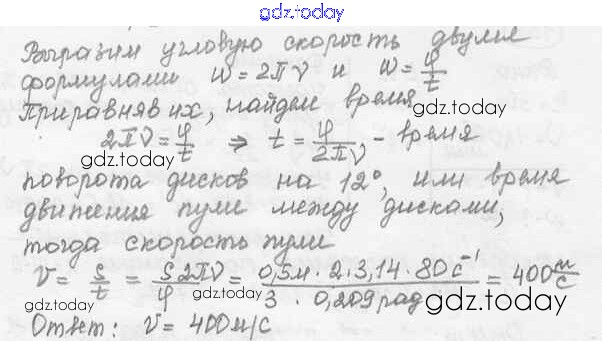 gdz.today
Выразим угловую скорость двумя
формулами ω = 2πν и ω = φ/t
gdz.today
Приравняв их, найдем время
2πν = φ/t ⇒ t = φ/2πν - время
gdz.today gdz.today
поворота дисков на 12°, или время
движения пули между дисками,
тогда скорость пули
v = S/t = S2πν/φ = 0,5м · 2 · 3,14 · 80 с⁻¹/3 · 0,209 рад = 400 м/с
gdz.today gdz.today gdz.today
Ответ: v = 400 м/с